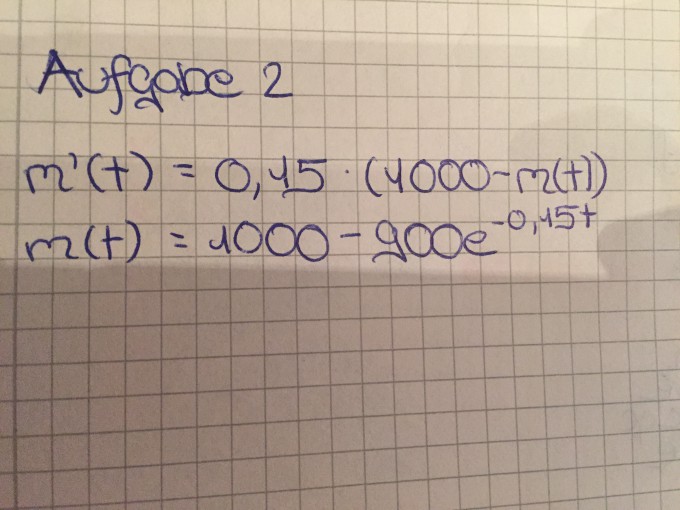 Aufgabe 2
m'(t) = 0,15 · (1000-m(t))
m(t) = 1000 - 900e^-0,15t